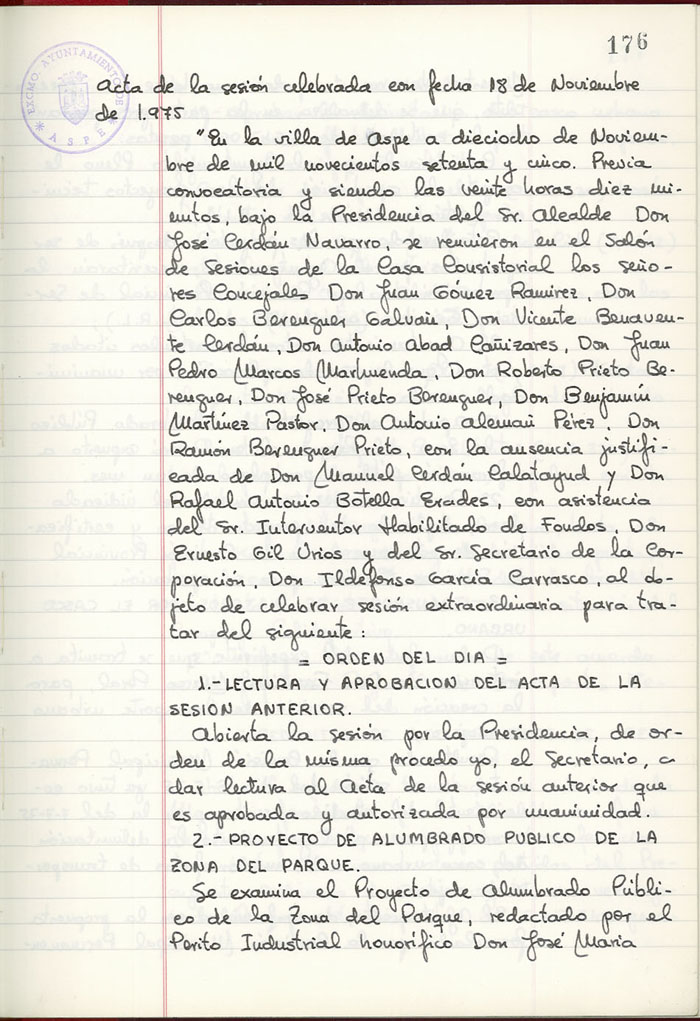 176
EXCMO. AYUNTAMIENTO DE
* ASPE *
Acta de la sesión celebrada con fecha 18 de Noviembre
de 1.975
"En la villa de Aspe a dieciocho de Noviem-
bre de mil novecientos setenta y cinco. Previa
convocatoria y siendo las veinte horas diez mi-
nutos, bajo la Presidencia del Sr. Alcalde Don
José Cerdán Navarro, se reunieron en el Salón
de Sesiones de la Casa Consistorial los seño-
res Concejales Don Juan Gómez Ramirez, Don
Carlos Berenguer Galvañ, Don Vicente Benaven-
te Cerdán, Don Antonio Abad Cañizares, Don Juan
Pedro Marcos Marhuenda, Don Roberto Prieto Be-
renguer, Don José Prieto Berenguer, Don Benjamín
Martínez Pastor, Don Antonio Alemañ Pérez, Don
Ramón Berenguer Prieto, con la ausencia justifi-
cada de Don Manuel Cerdán Calatayud y Don
Rafael Antonio Botella Erades, con asistencia
del Sr. Interventor Habilitado de Fondos, Don
Ernesto Gil Urios y del Sr. Secretario de la Cor-
poración, Don Ildefonso García Carrasco, al ob-
jeto de celebrar sesión extraordinaria para tra-
tar del siguiente:
= ORDEN DEL DIA =
1.- LECTURA Y APROBACION DEL ACTA DE LA
SESION ANTERIOR.
Abierta la sesión por la Presidencia, de or-
den de la misma procedo yo, el Secretario, a
dar lectura al Acta de la sesión anterior que
es aprobada y autorizada por unanimidad.
2.- PROYECTO DE ALUMBRADO PUBLICO DE LA
ZONA DEL PARQUE.
Se examina el Proyecto de Alumbrado Públi-
co de la Zona del Parque, redactado por el
Perito Industrial honorífico Don José Maria